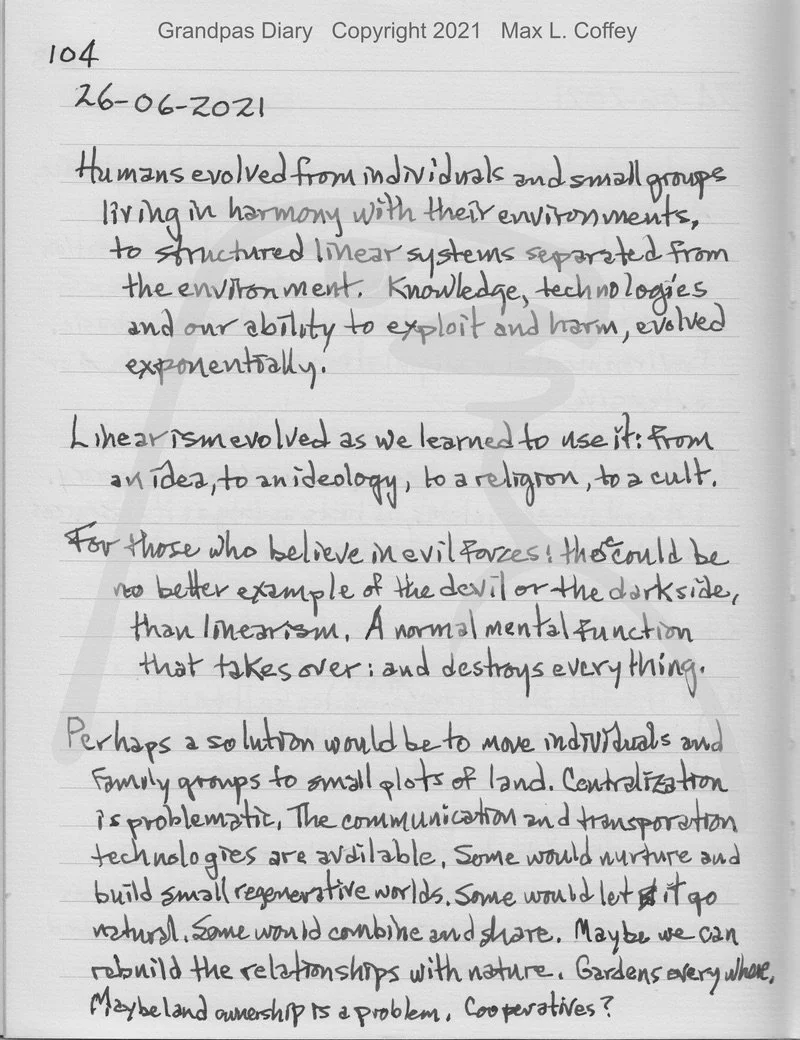 Grandpas Diary Copyright 2021 Max L. Coffey
104
26-06-2021
Humans evolved from individuals and small groups
living in harmony with their environments,
to structured linear systems separated from
the environment. Knowledge, technologies
and our ability to exploit and harm, evolved
exponentially.
Linearism evolved as we learned to use it: from
an idea, to an ideology, to a religion, to a cult.
For those who believe in evil forces: there could be
no better example of the devil or the dark side,
than linearism. A normal mental function
that takes over: and destroys everything.
Perhaps a solution would be to move individuals and
family groups to small plots of land. Centralization
is problematic. The communication and transporation
technologies are available. Some would nurture and
build small regenerative worlds. Some would let it go
natural. Some would combine and share. Maybe we can
rebuild the relationships with nature. Gardens everywhere.
Maybe land ownership is a problem. Cooperatives?